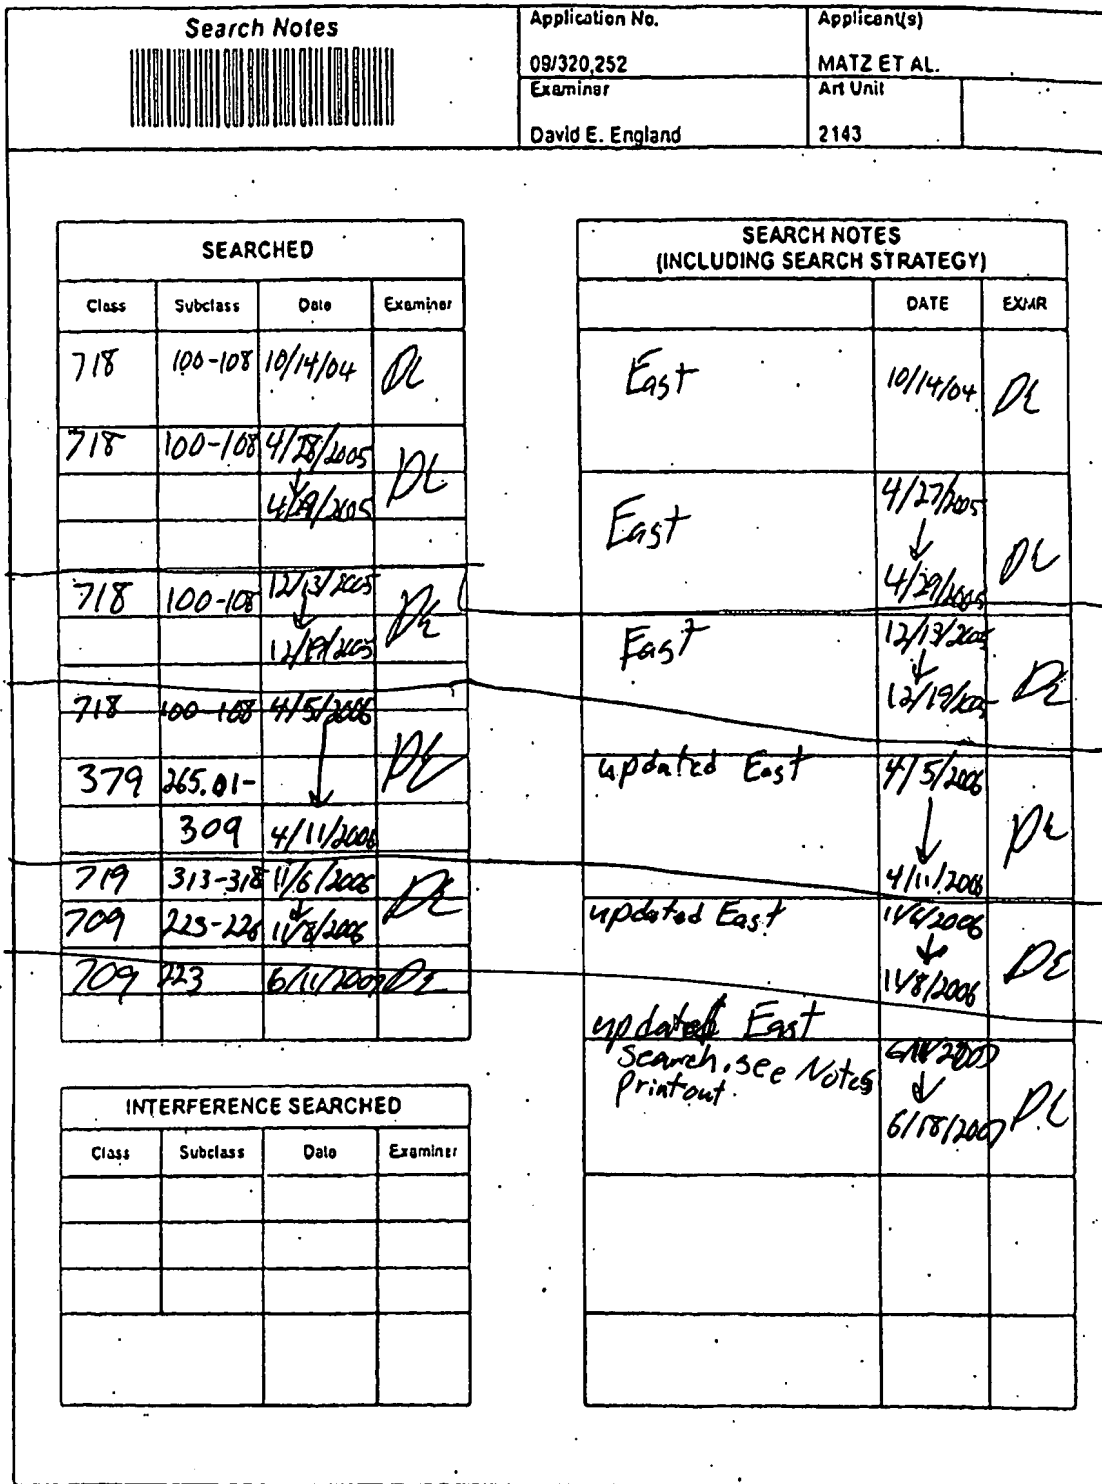 Search Notes
Application No.
09/320,252
Applicant(s)
MATZ ET AL.
Examiner
David E. England
Art Unit
2143
SEARCHED
Class Subclass Date Examiner
718 100-108 10/14/04 DE
718 100-108 4/28/2005 DE
4/29/2005
718 100-108 12/13/2005 DE
12/19/2005
718 100-108 4/5/2006 DE
379 265.01-
309 4/11/2006
719 313-318 11/6/2006 DE
709 223-226 11/8/2006
709 223 6/11/2007 DE
INTERFERENCE SEARCHED
Class Subclass Date Examiner
SEARCH NOTES
(INCLUDING SEARCH STRATEGY)
DATE EXMR
East 10/14/04 DE
East 4/27/2005 DE
4/29/2005
East 12/13/2005 DE
12/19/2005
updated East 4/5/2006 DE
4/11/2006
updated East 11/6/2006 DE
11/8/2006
updated East
Search, see Notes 6/11/2007 DE
Printout. 6/18/2007